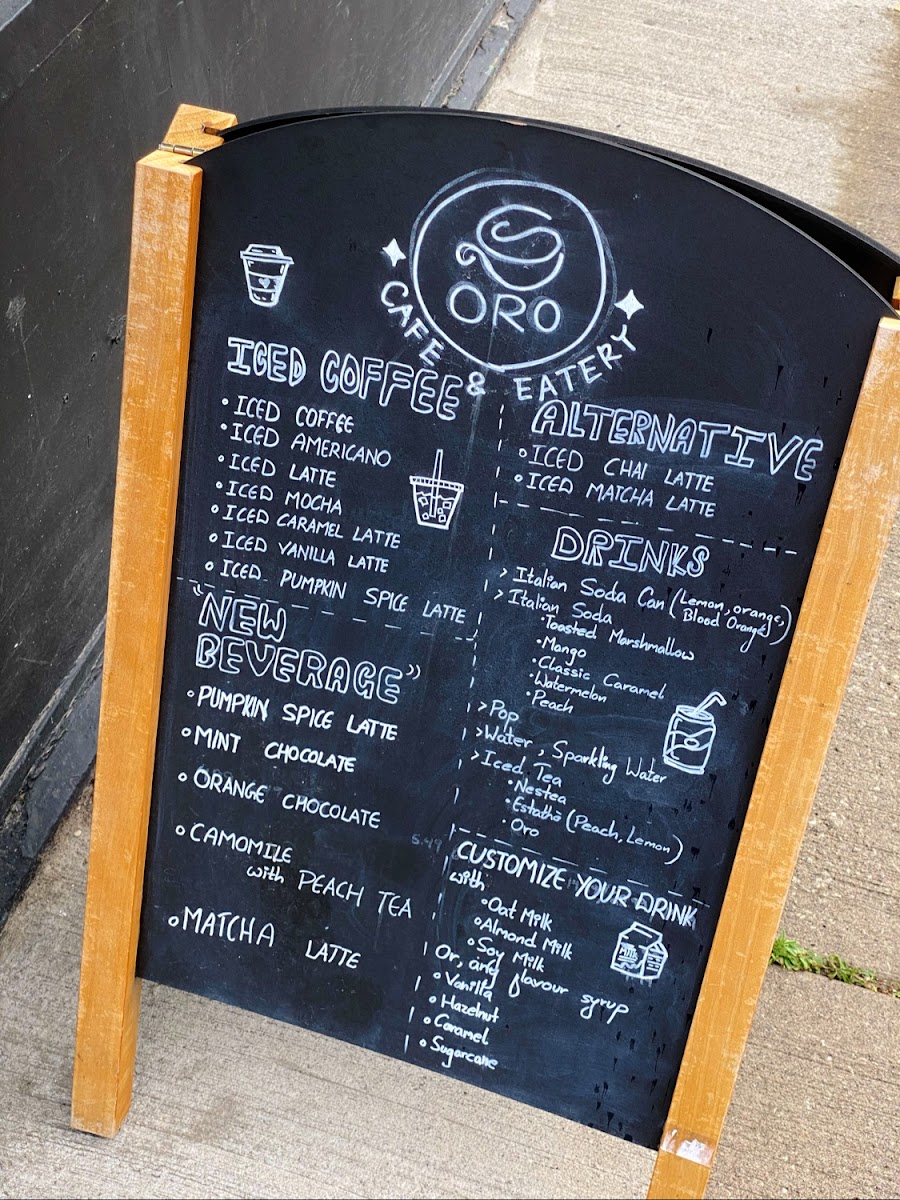 ORO
CAFE & EATERY
ICED COFFEE
• ICED COFFEE
• ICED AMERICANO
• ICED LATTE
• ICED MOCHA
• ICED CARAMEL LATTE
• ICED VANILLA LATTE
• ICED PUMPKIN SPICE LATTE
"NEW
BEVERAGE"
• PUMPKIN SPICE LATTE
• MINT CHOCOLATE
• ORANGE CHOCOLATE
• CAMOMILE
with PEACH TEA
• MATCHA LATTE
ALTERNATIVE
• ICED CHAI LATTE
• ICED MATCHA LATTE
DRINKS
> Italian Soda Can (Lemon, orange,
Blood Orange)
> Italian Soda
• Toasted Marshmallow
• Mango
• Classic Caramel
• Watermelon
• Peach
> Pop
> Water, Sparkling Water
> Iced Tea
• Nestea
• Estathe (Peach, Lemon)
• Oro
CUSTOMIZE YOUR DRINK
with
• Oat Milk
• Almond Milk
• Soy Milk
Or, any flavour syrup
• Vanilla
• Hazelnut
• Caramel
• Sugarcane